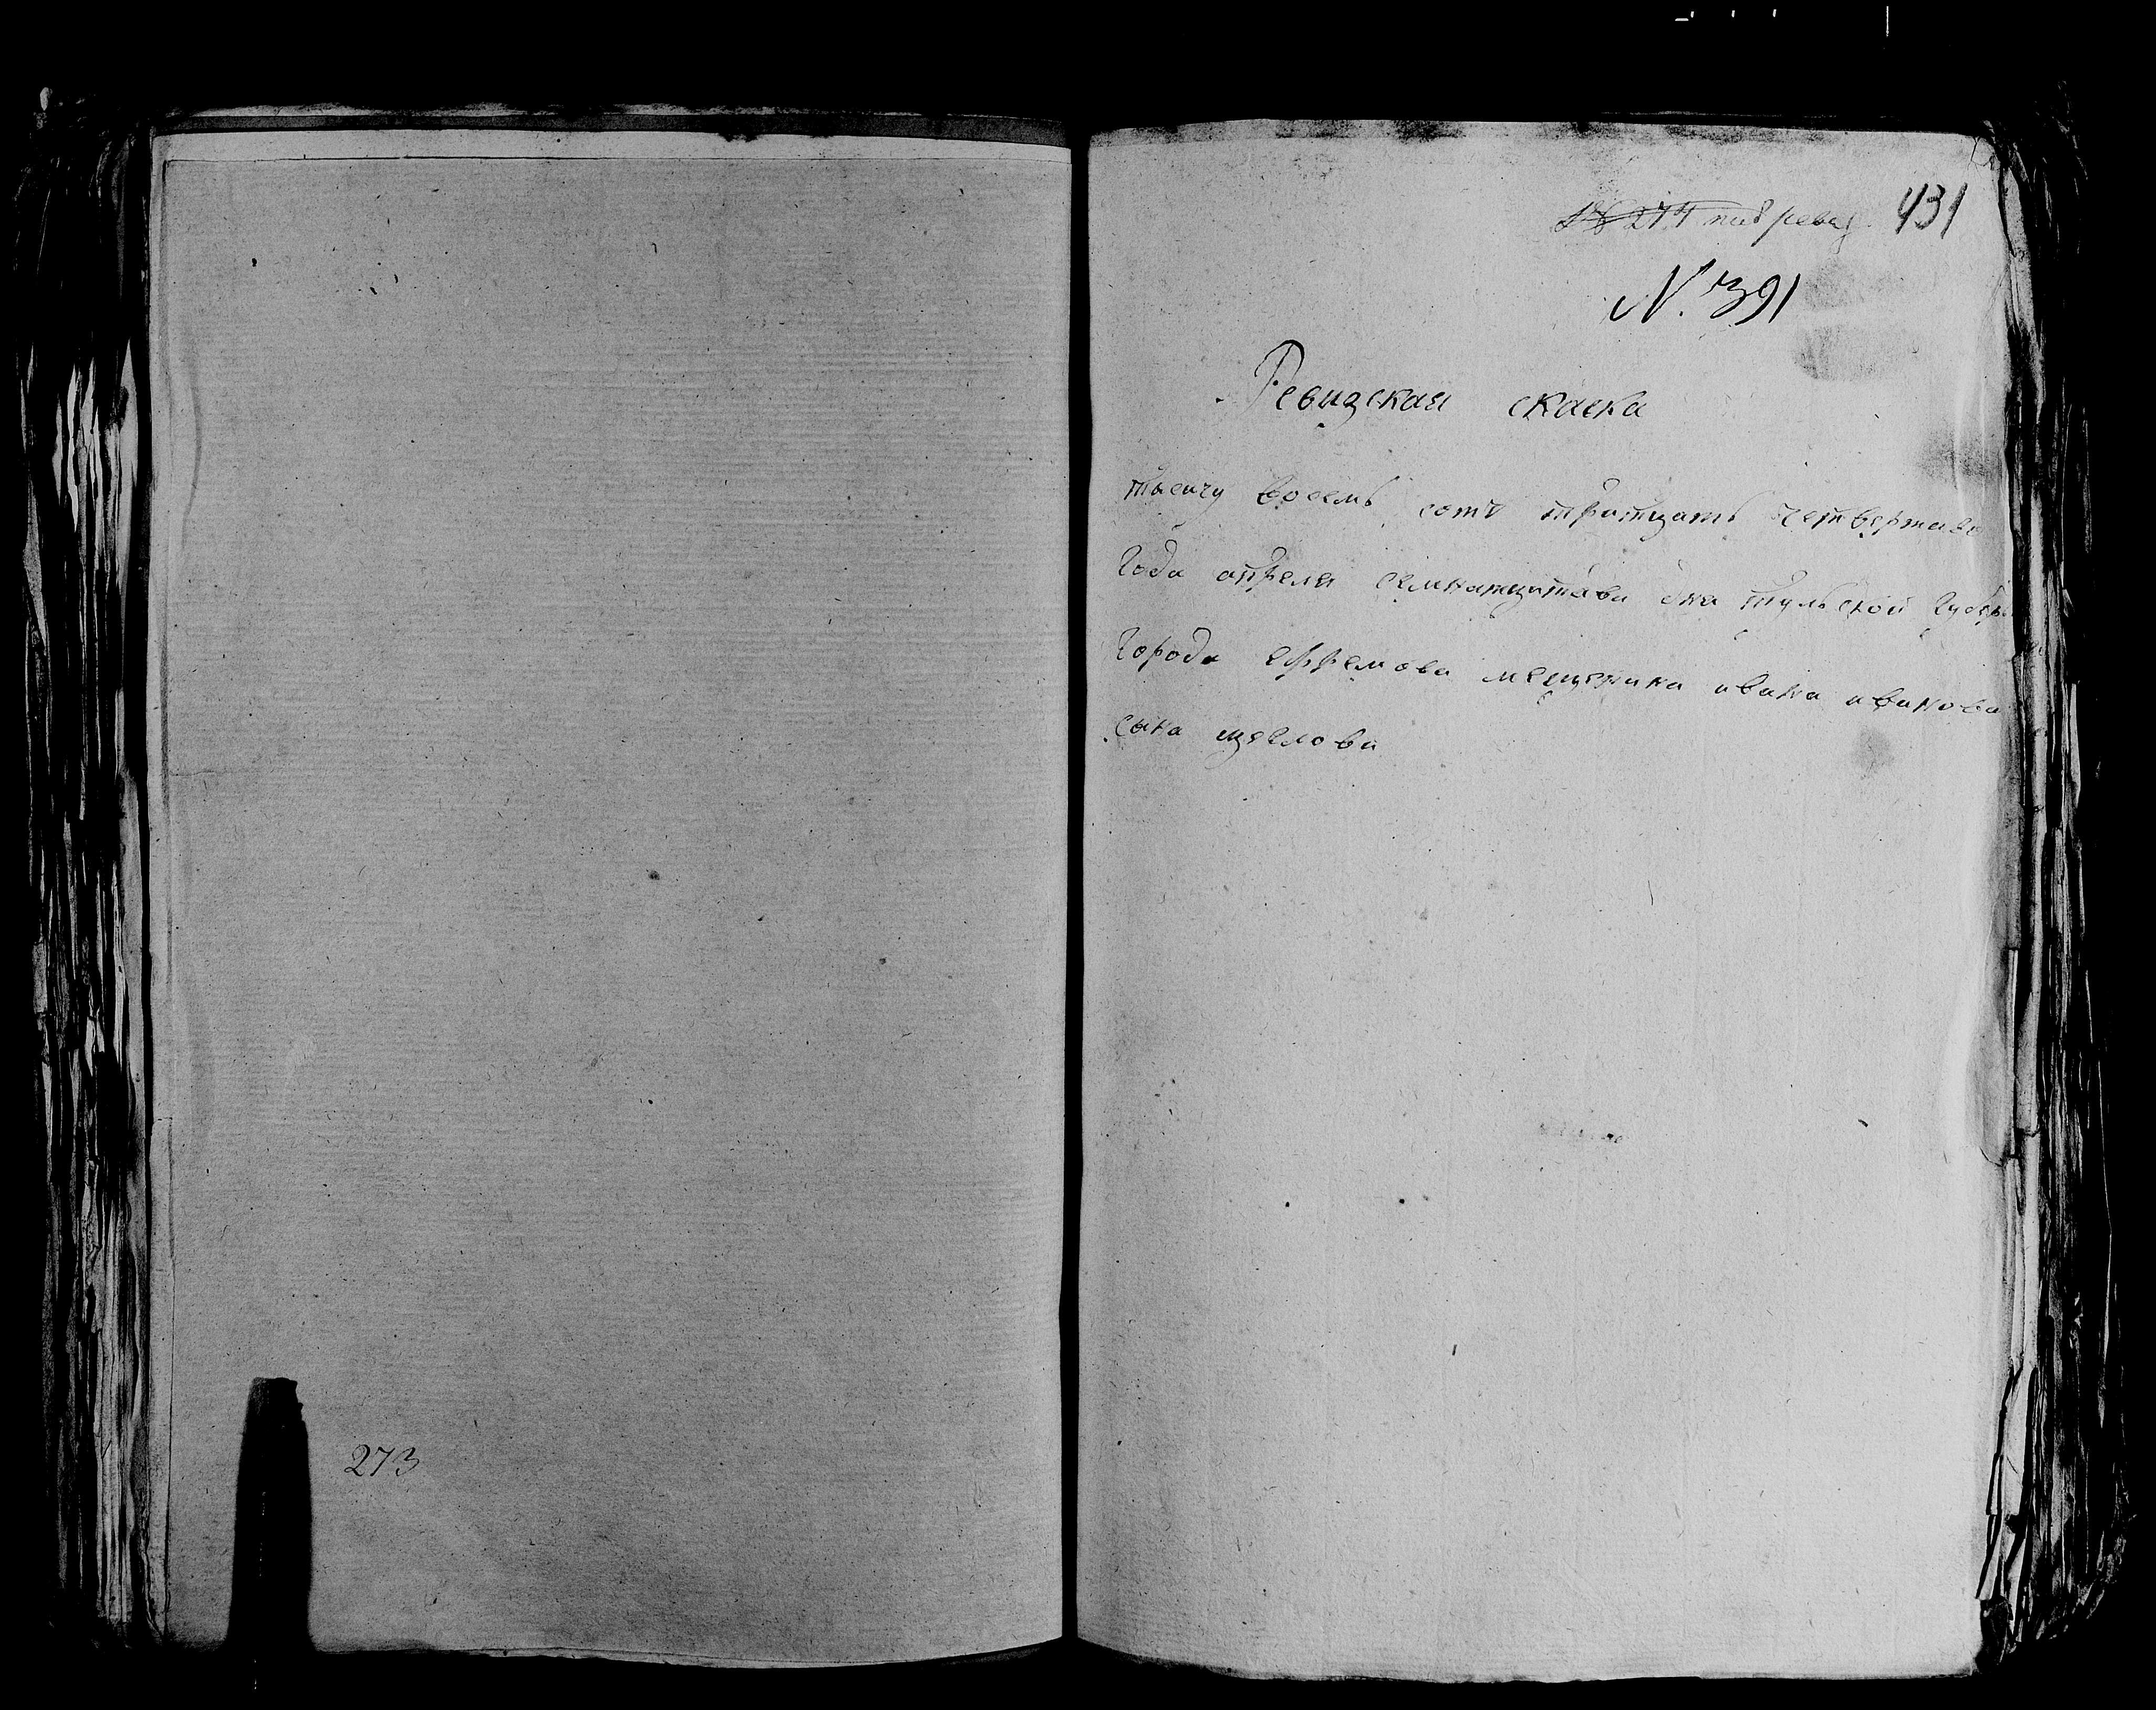 273
№ 274 431
N. 391
Ревизская скаска
тысечу восемь сотъ тритцать четвертаво
Года апреля семнатцатава дня тульской Губерн
Города ефремова мещенина ивана иванова
сына щеглова